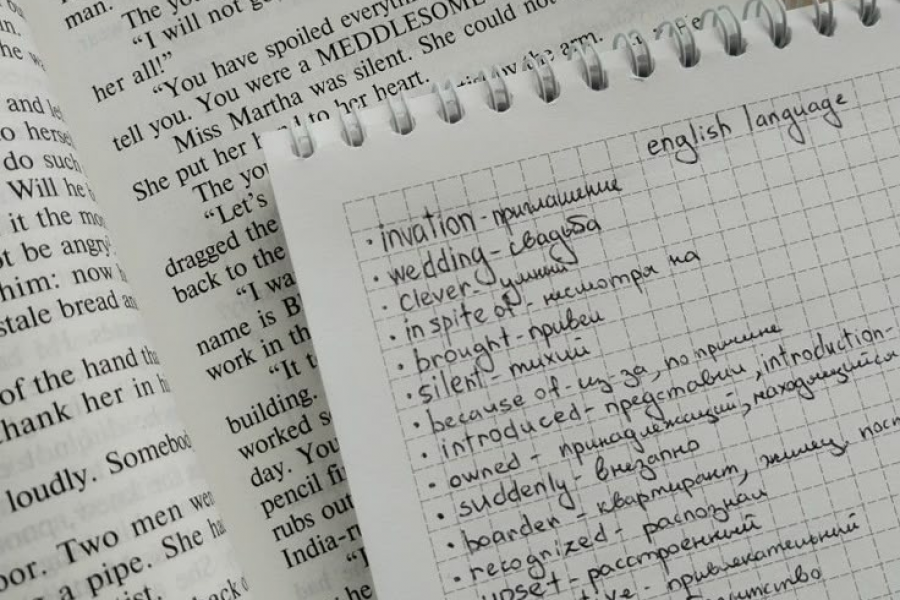 man. The yo
"I will not g
her all!"
"You have spoiled everyth
tell you. You were a MEDDLESOME
Miss Martha was silent. She could not
She put her h to her heart.
the arm.
The yo
"Let's
dragged the
back to the
"I wa
name is B
work in th
"It t
building.
worked s
day. You
pencil fi
rubs out
India-r
and le
o herse
do such
Will he
it the mo
t be angry
him: now
stale bread a
of the hand th
hank her in h
loudly. Somebod
oor. Two men wer
a pipe. She ha
english language
· invation - приглашение
· wedding - свадьба
· clever - умный
· in spite of - несмотря на
· brought - привёл
· silent - тихий
· because of - из-за, по причине
· introduced - представил, introduction -
· owned - принадлежащий, находящийся
· suddenly - внезапно
· boarder - квартирант, жилец, пост
· recognized - распознал
upset - расстроенный
ive - привлекательный